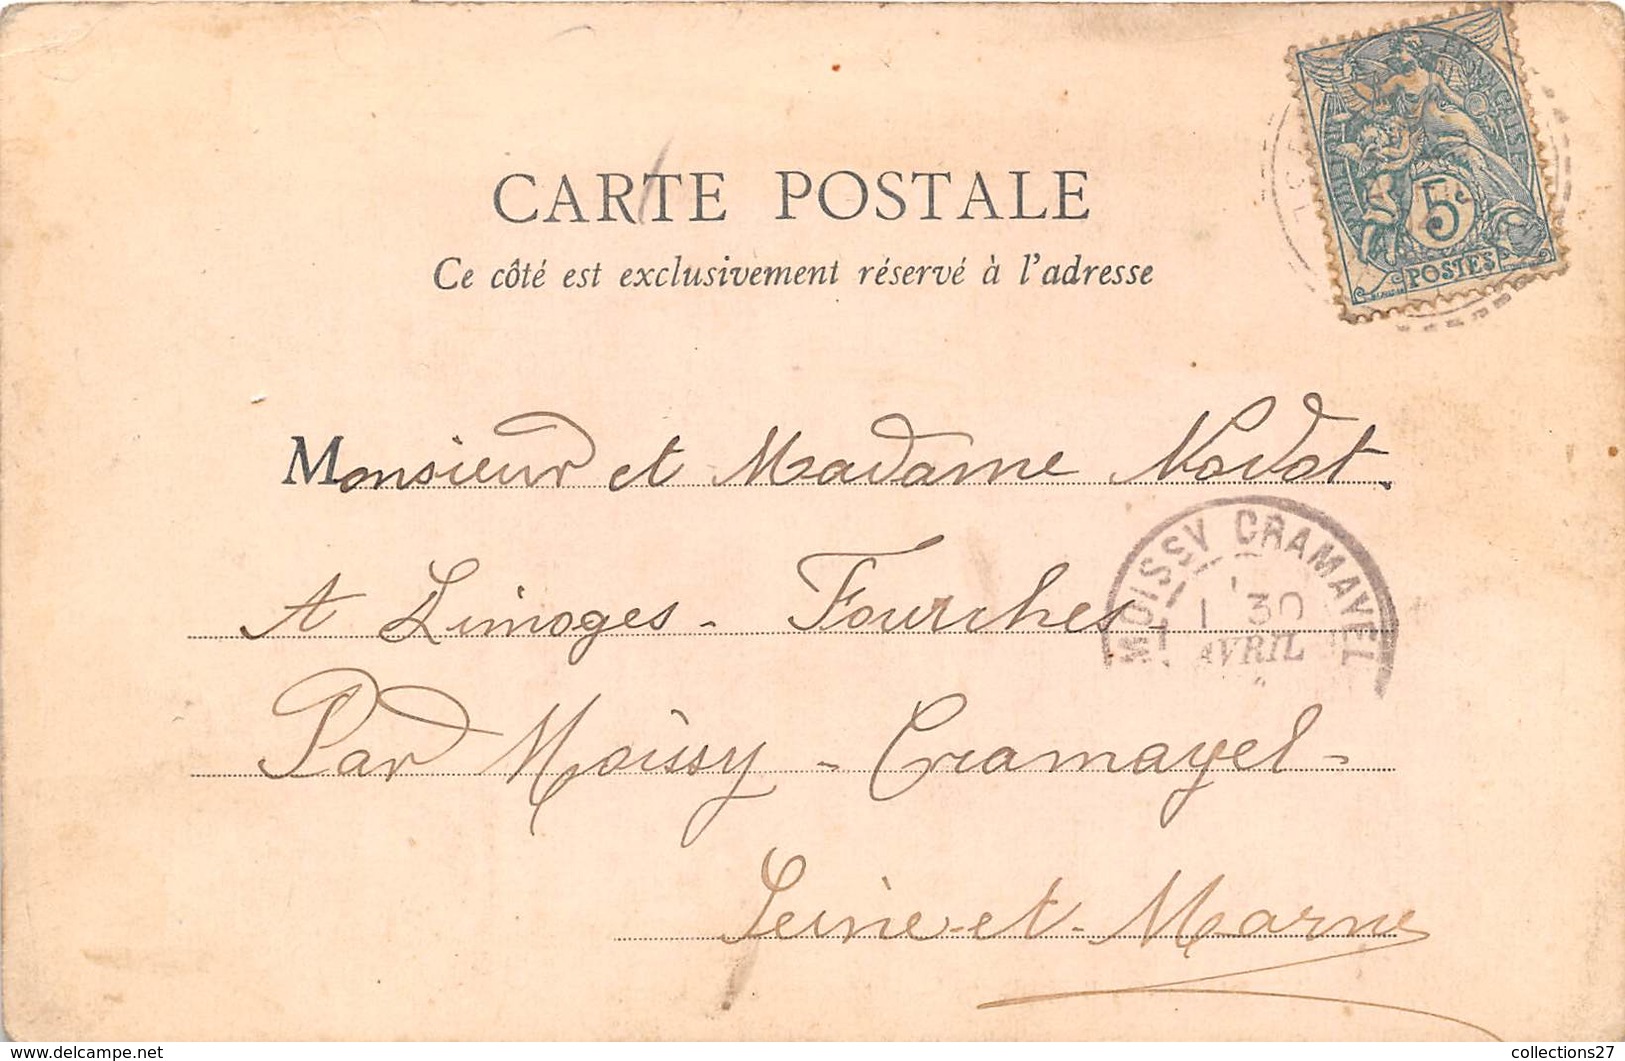 CARTE POSTALE
Ce côté est exclusivement réservé à l'adresse
RÉPUBLIQUE FRANÇAISE
5c
POSTES
Monsieur et Madame Nodot.
A Limoges - Fourches -
Par Moissy - Cramayel -
Seine-et-Marne
MOISSY CRAMAYEL
1 30
AVRIL
www.delcampe.net
collections27